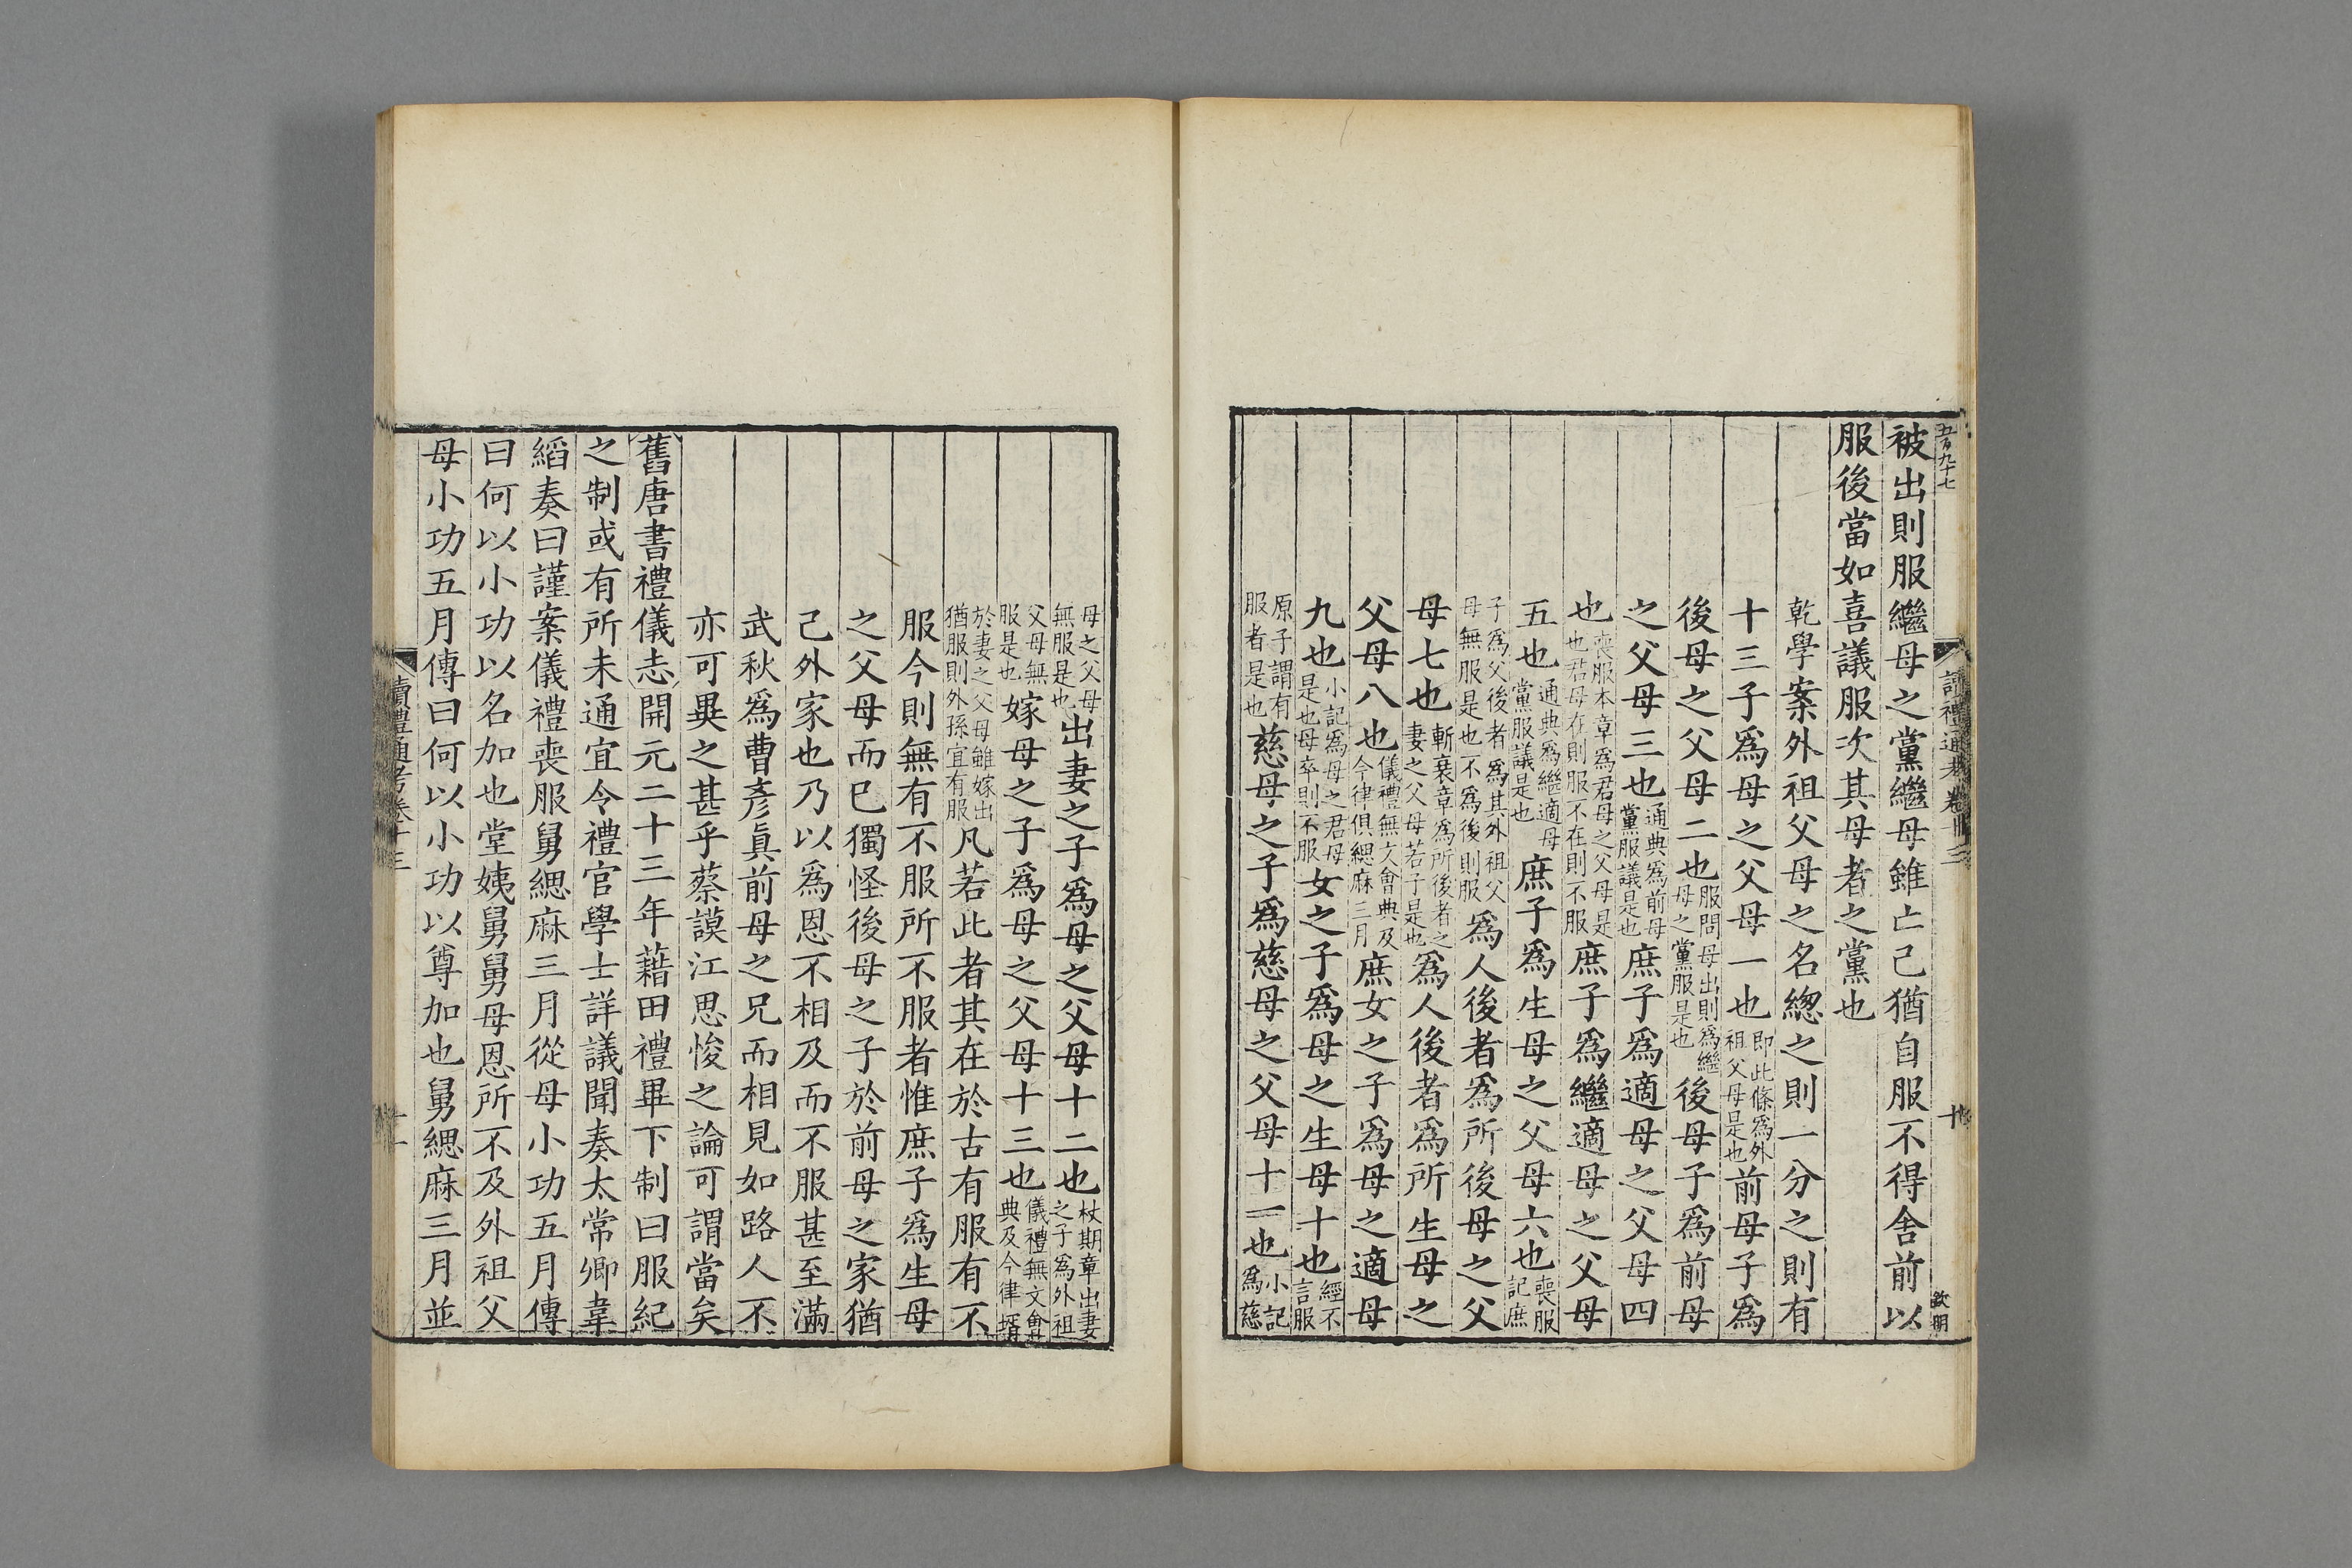 五百九十七
讀禮通考卷十三
十
欽明
被出則服繼母之黨繼母雖亡己猶自服不得舍前以
服後當如喜議服次其母者之黨也
乾學案外祖父母之名緫之則一分之則有
十三子爲母之父母一也即此條爲外祖父母是也前母子爲
後母之父母二也服問母出則爲繼母之黨服是也後母子爲前母
之父母三也通典爲前母黨服議是也庶子爲適母之父母四
也喪服本章爲君母之父母是也君母在則服不在則不服庶子爲繼適母之父母
五也通典爲繼適母黨服議是也庶子爲生母之父母六也喪服記庶
子爲父後者爲其外祖父母無服是也不爲後則服爲人後者爲所後母之父
母七也斬衰章爲所後者之妻之父母若子是也爲人後者爲所生母之
父母八也儀禮無文會典及今律俱緦麻三月庶女之子爲母之適母
九也小記爲母之君母是也母卒則不服女之子爲母之生母十也經不言服
原子謂有服者是也慈母之子爲慈母之父母十一也小記爲慈
母之父母無服是也出妻之子爲母之父母十二也杖期章出妻之子爲外祖
父母無服是也嫁母之子爲母之父母十三也儀禮無文會典及今律壻
於妻之父母雖嫁出猶服則外孫宜有服凡若此者其在於古有服有不
服今則無有不服所不服者惟庶子爲生母
之父母而已獨怪後母之子於前母之家猶
己外家也乃以爲恩不相及而不服甚至滿
武秋爲曹彥眞前母之兄而相見如路人不
亦可異之甚乎蔡謨江思悛之論可謂當矣
舊唐書禮儀志開元二十三年藉田禮畢下制曰服紀
之制或有所未通宜令禮官學士詳議聞奏太常卿韋
縚奏曰謹案儀禮喪服舅緦麻三月從母小功五月傳
曰何以小功以名加也堂姨舅舅母恩所不及外祖父
母小功五月傳曰何以小功以尊加也舅緦麻三月並
讀禮通考卷十三
十一